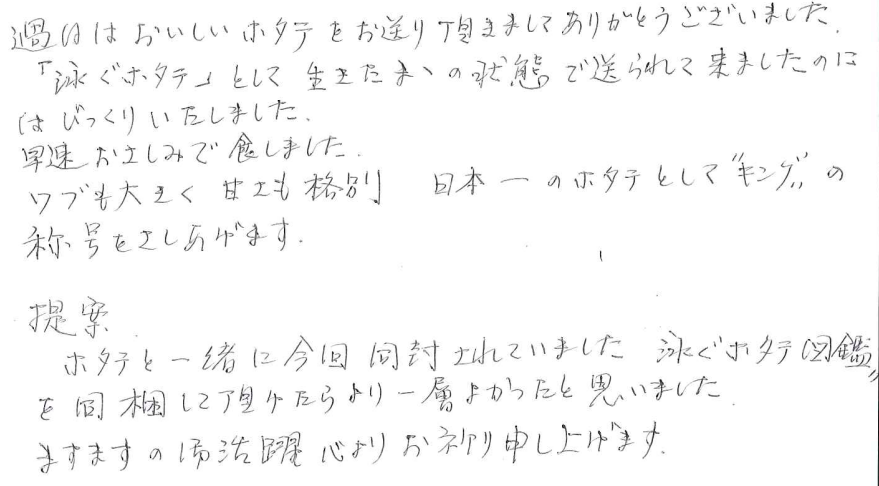 過日はおいしいホタテをお送り頂きましてありがとうございました.
「泳ぐホタテ」として生きたまゝの状態で送られて来ましたのに
はびっくりいたしました.
早速おさしみで食しました.
ツブも大きく 甘さも格別 日本一のホタテとして"キング"の
称号をさしあげます.
提案
ホタテと一緒に今回同封されていました 泳ぐホタテ図鑑"
を同梱して頂けたらより一層よかったと思いました
ますますの御活躍心よりお祈り申し上げます.